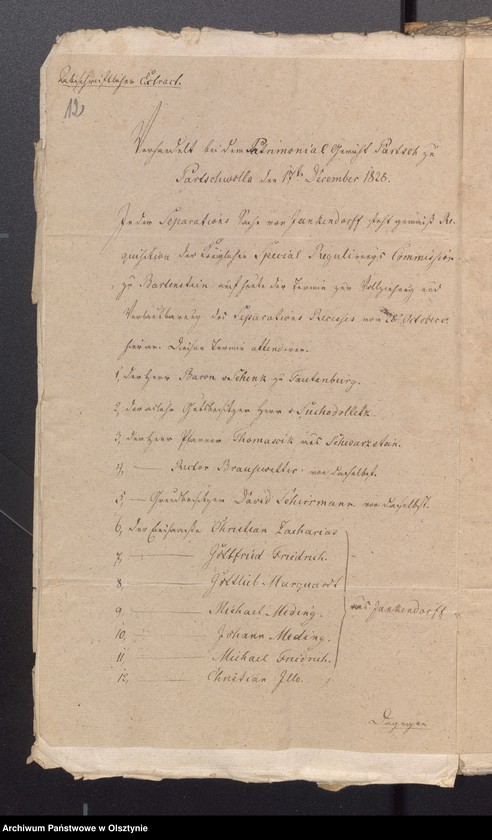 Abschriftlicher Extract.
12
Verhandelt bei dem Patrimonial Gericht Partsch zu
Partschwolla den 17ten December 1828.
In der Separations Sache von Jankendorff steht gemäß Re-
quisition der Königlichen Special Regulirungs Commission
zu Bartenstein auf heute der Termin zur Vollziehung und
Verlautbarung des Separations Recesses vom 28. October
hier an. Diesen Termin
1, der Herr Baron v Schenk zu Tautenburg.
2, der adliche Gutsbesitzer Herr v Suchodolletz
3, der Herr Pfarrer Thomascik aus Schwarzstein.
4, — Rector Braunwetter von daselbst.
5, — Grundbesitzer David Schirrmann von daselbst.
6, der Christian Zacharias
7, — Gottfried Friedrich.
8, — Gottlieb Marquardt
9, — Michael Meding.
10, — Johann Meding.
11, — Michael Friedrich.
12, — Christian Illo.
aus Jankendorff
Dagegen
Archiwum Państwowe w Olsztynie